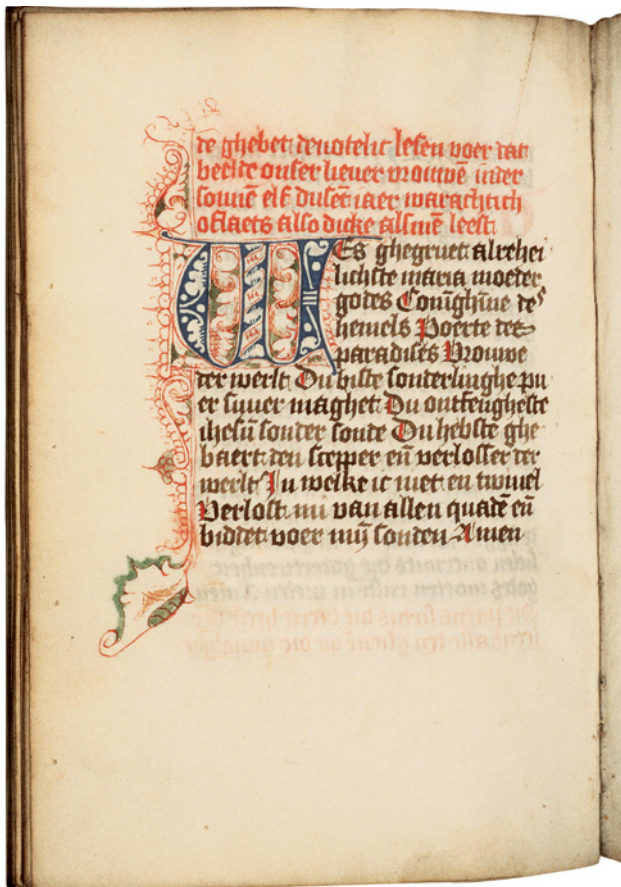 de ghebet deuotelic lesen voer dat
beelde onser liever vrouwē inder
sonnē elf dusēt iaer warachtich
oflaets also dicke alsmē leest
WEs ghegruet alrehei
lichste maria moeder
godes Conighīne des
hemels Poerte des
paradises Vrouwe
der werlt Du biste sonderlinghe pu
er suver maghet Du ontfengheste
ihesū sonder sonde Du hebste ghe
baert den scepper eñ verlosser der
werlt In welke ic niet en twivel
Verlost mi van allen quadē eñ
biddet voer mij sonden Amen